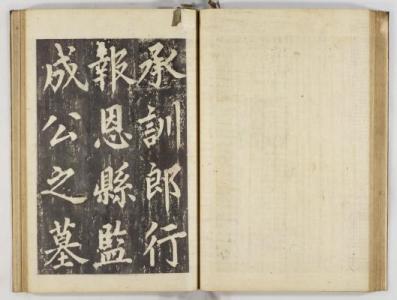 承訓郎行
報恩縣監
成公之墓